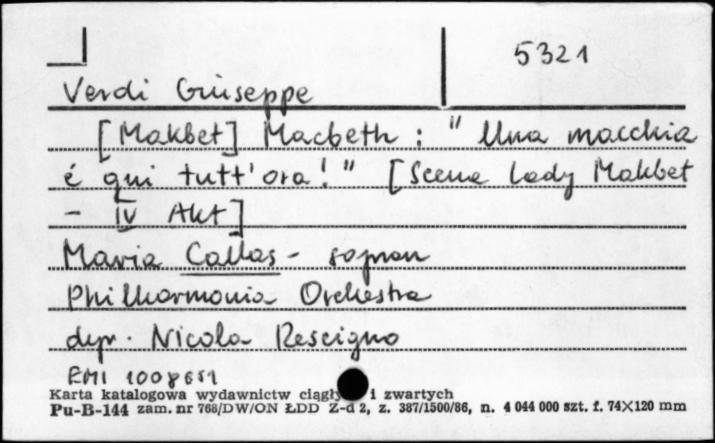 5321
Verdi Giuseppe
[Makbet] Macbeth : "Una macchia
é qui tutt'ora!" [Scena Lady Makbet
- IV Akt]
Maria Callas - sopran
Philharmonia Orchestra
dyr. Nicola Rescigno
EMI 1008651
Karta katalogowa wydawnictw ciągły i zwartych
Pu-B-144 zam. nr 768/DW/ON ŁDD Z-d 2, z. 387/1500/86, n. 4 044 000 szt. f. 74×120 mm